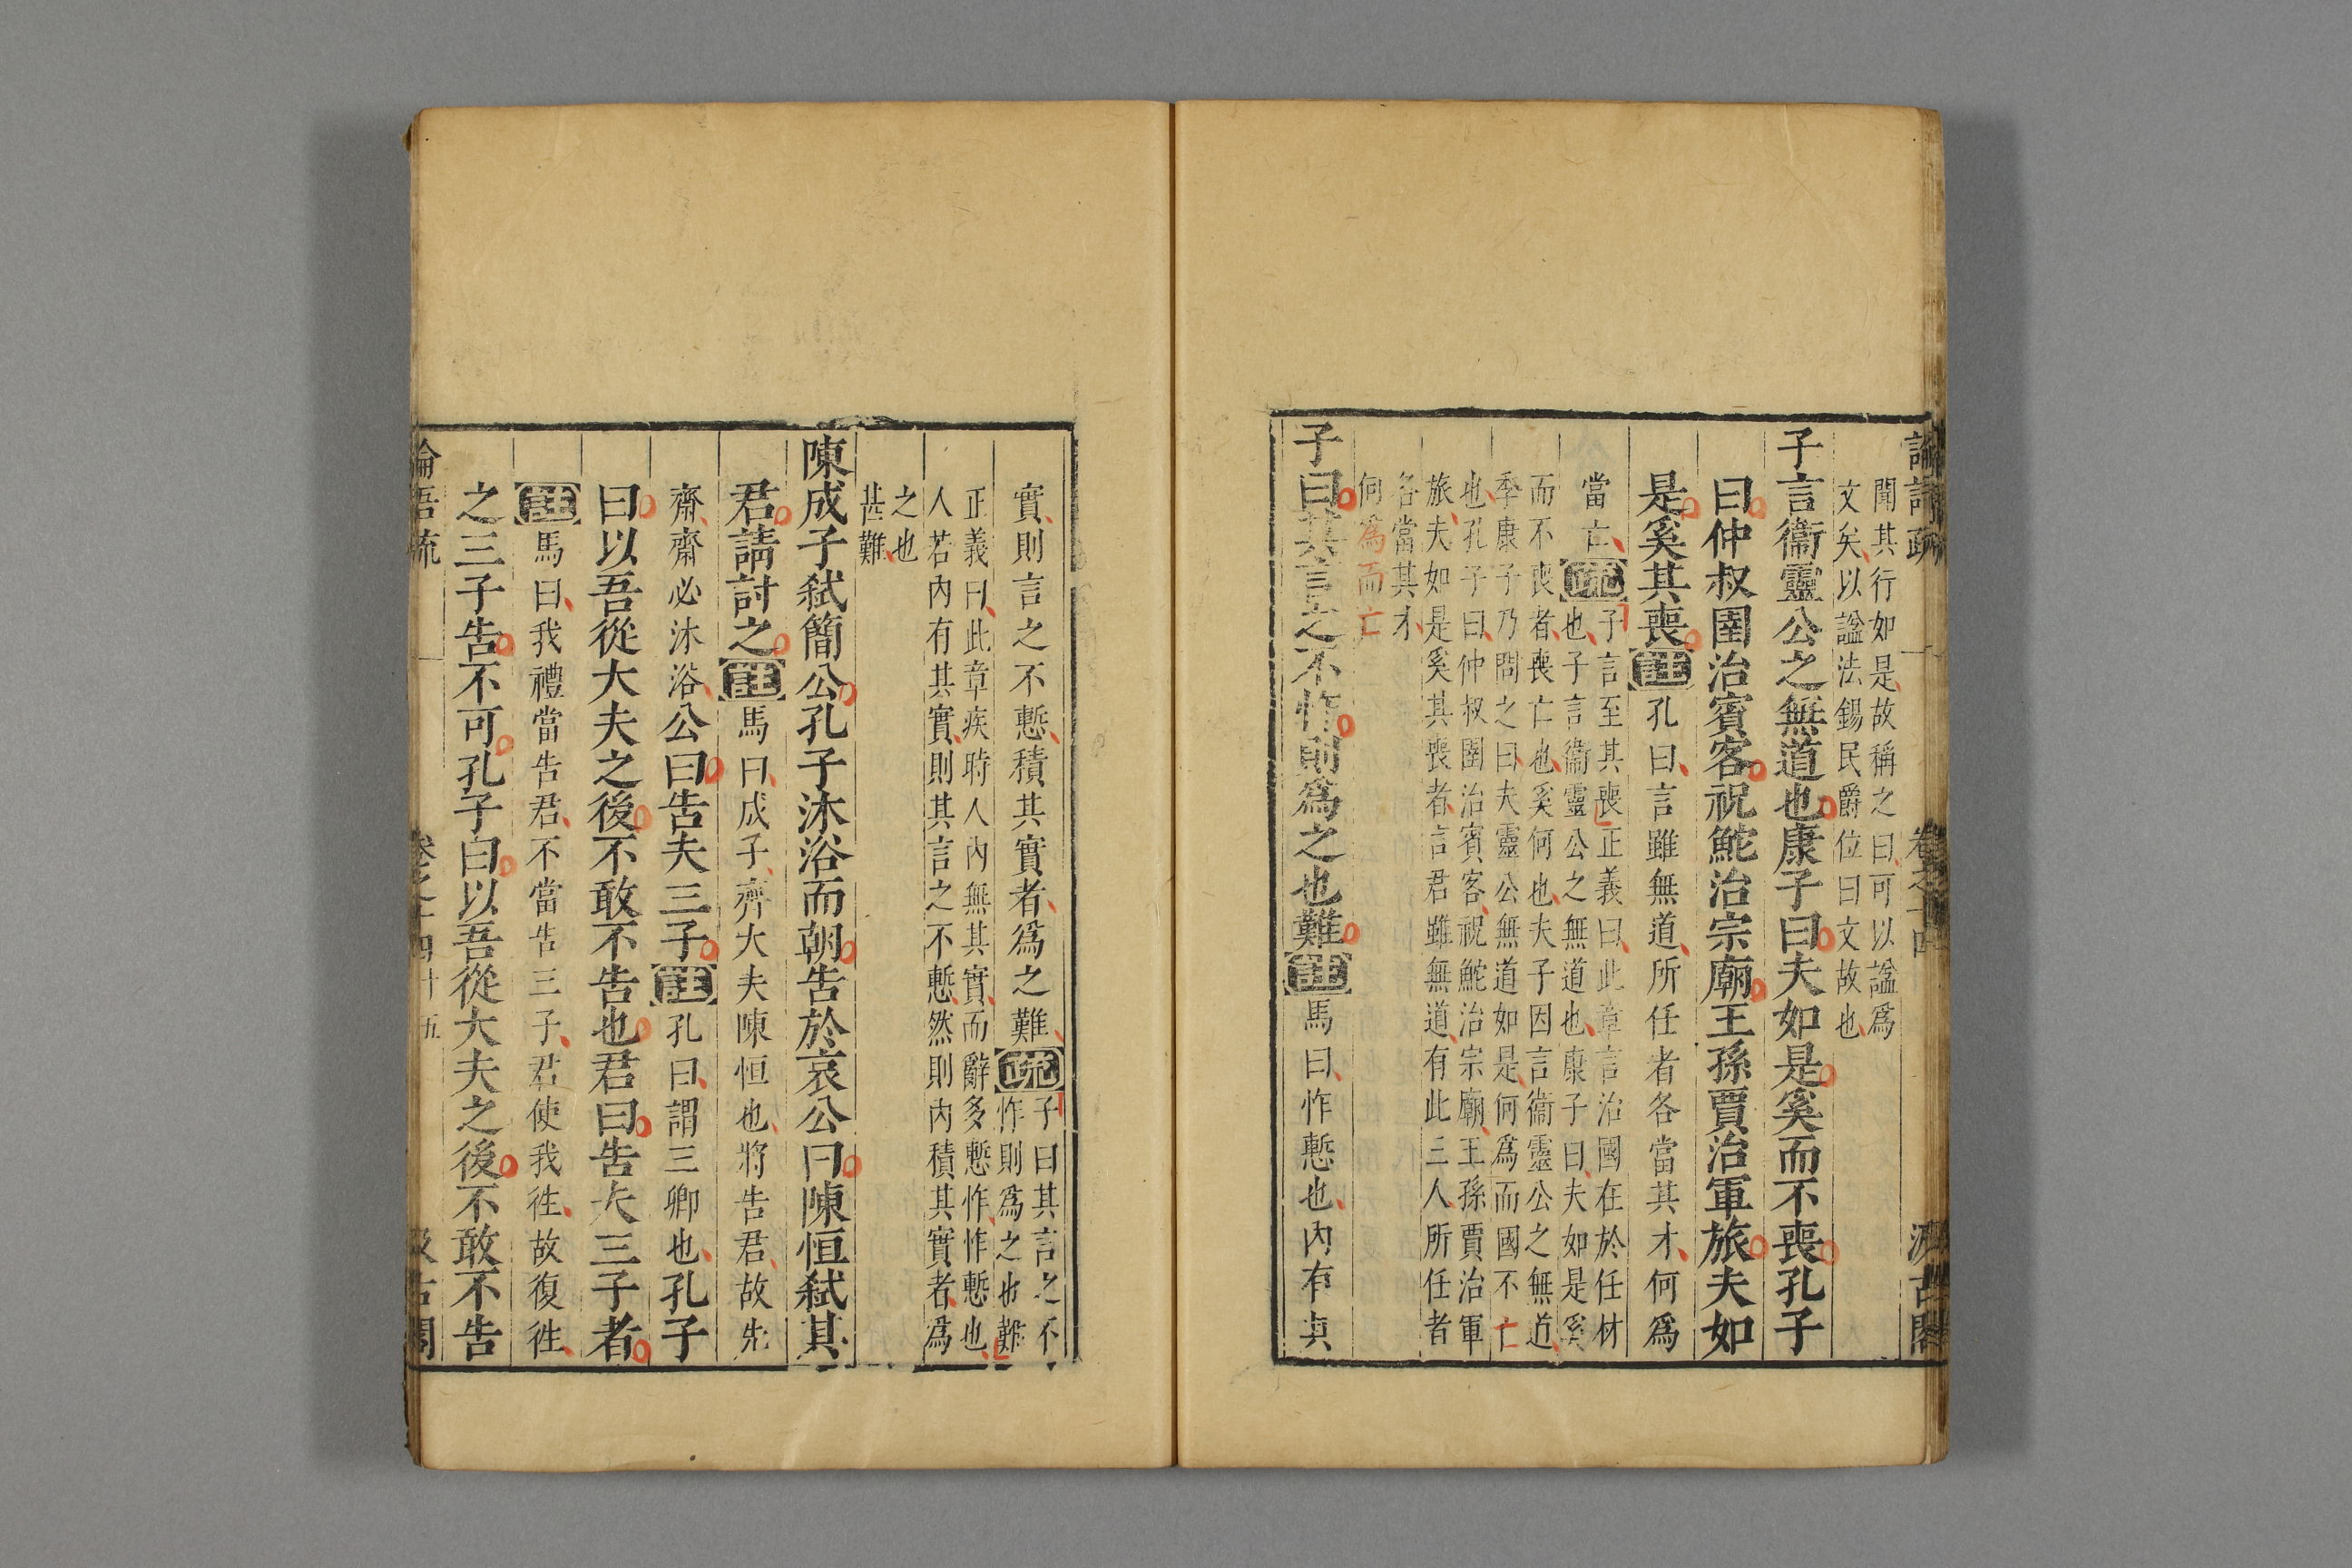 論語疏 卷之十四 汲古閣
聞其行如是故稱之曰可以諡爲
文矣以諡法錫民爵位曰文故也
子言衞靈公之無道也康子曰夫如是奚而不喪孔子
曰仲叔圉治賓客祝鮀治宗廟王孫賈治軍旅夫如
是奚其喪註孔曰言雖無道所任者各當其才何爲
當亡疏子言至其喪正義曰此章言治國在於任材
也子言衞靈公之無道也康子曰夫如是奚
而不喪者喪亡也奚何也夫子因言衞靈公之無道
季康子乃問之曰夫靈公無道如是何爲而國不亡
也孔子曰仲叔圉治賓客祝鮀治宗廟王孫賈治軍
旅夫如是奚其喪者言君雖無道有此三人所任者
各當其才
何爲而亡
子曰其言之不怍則爲之也難註馬曰怍慙也內有其
實則言之不慙積其實者爲之難疏子曰其言之不
怍則爲之也難
正義曰此章疾時人內無其實而辭多慙怍怍慙也
人若內有其實則其言之不慙然則內積其實者爲
之也
甚難
陳成子弒簡公孔子沐浴而朝告於哀公曰陳恒弒其
君請討之註馬曰成子齊大夫陳恒也將告君故先
齋齋必沐浴公曰告夫三子註孔曰謂三卿也孔子
曰以吾從大夫之後不敢不告也君曰告夫三子者
註馬曰我禮當告君不當告三子君使我徃故復徃
之三子告不可孔子曰以吾從大夫之後不敢不告
論語疏 卷之十四 十五 汲古閣